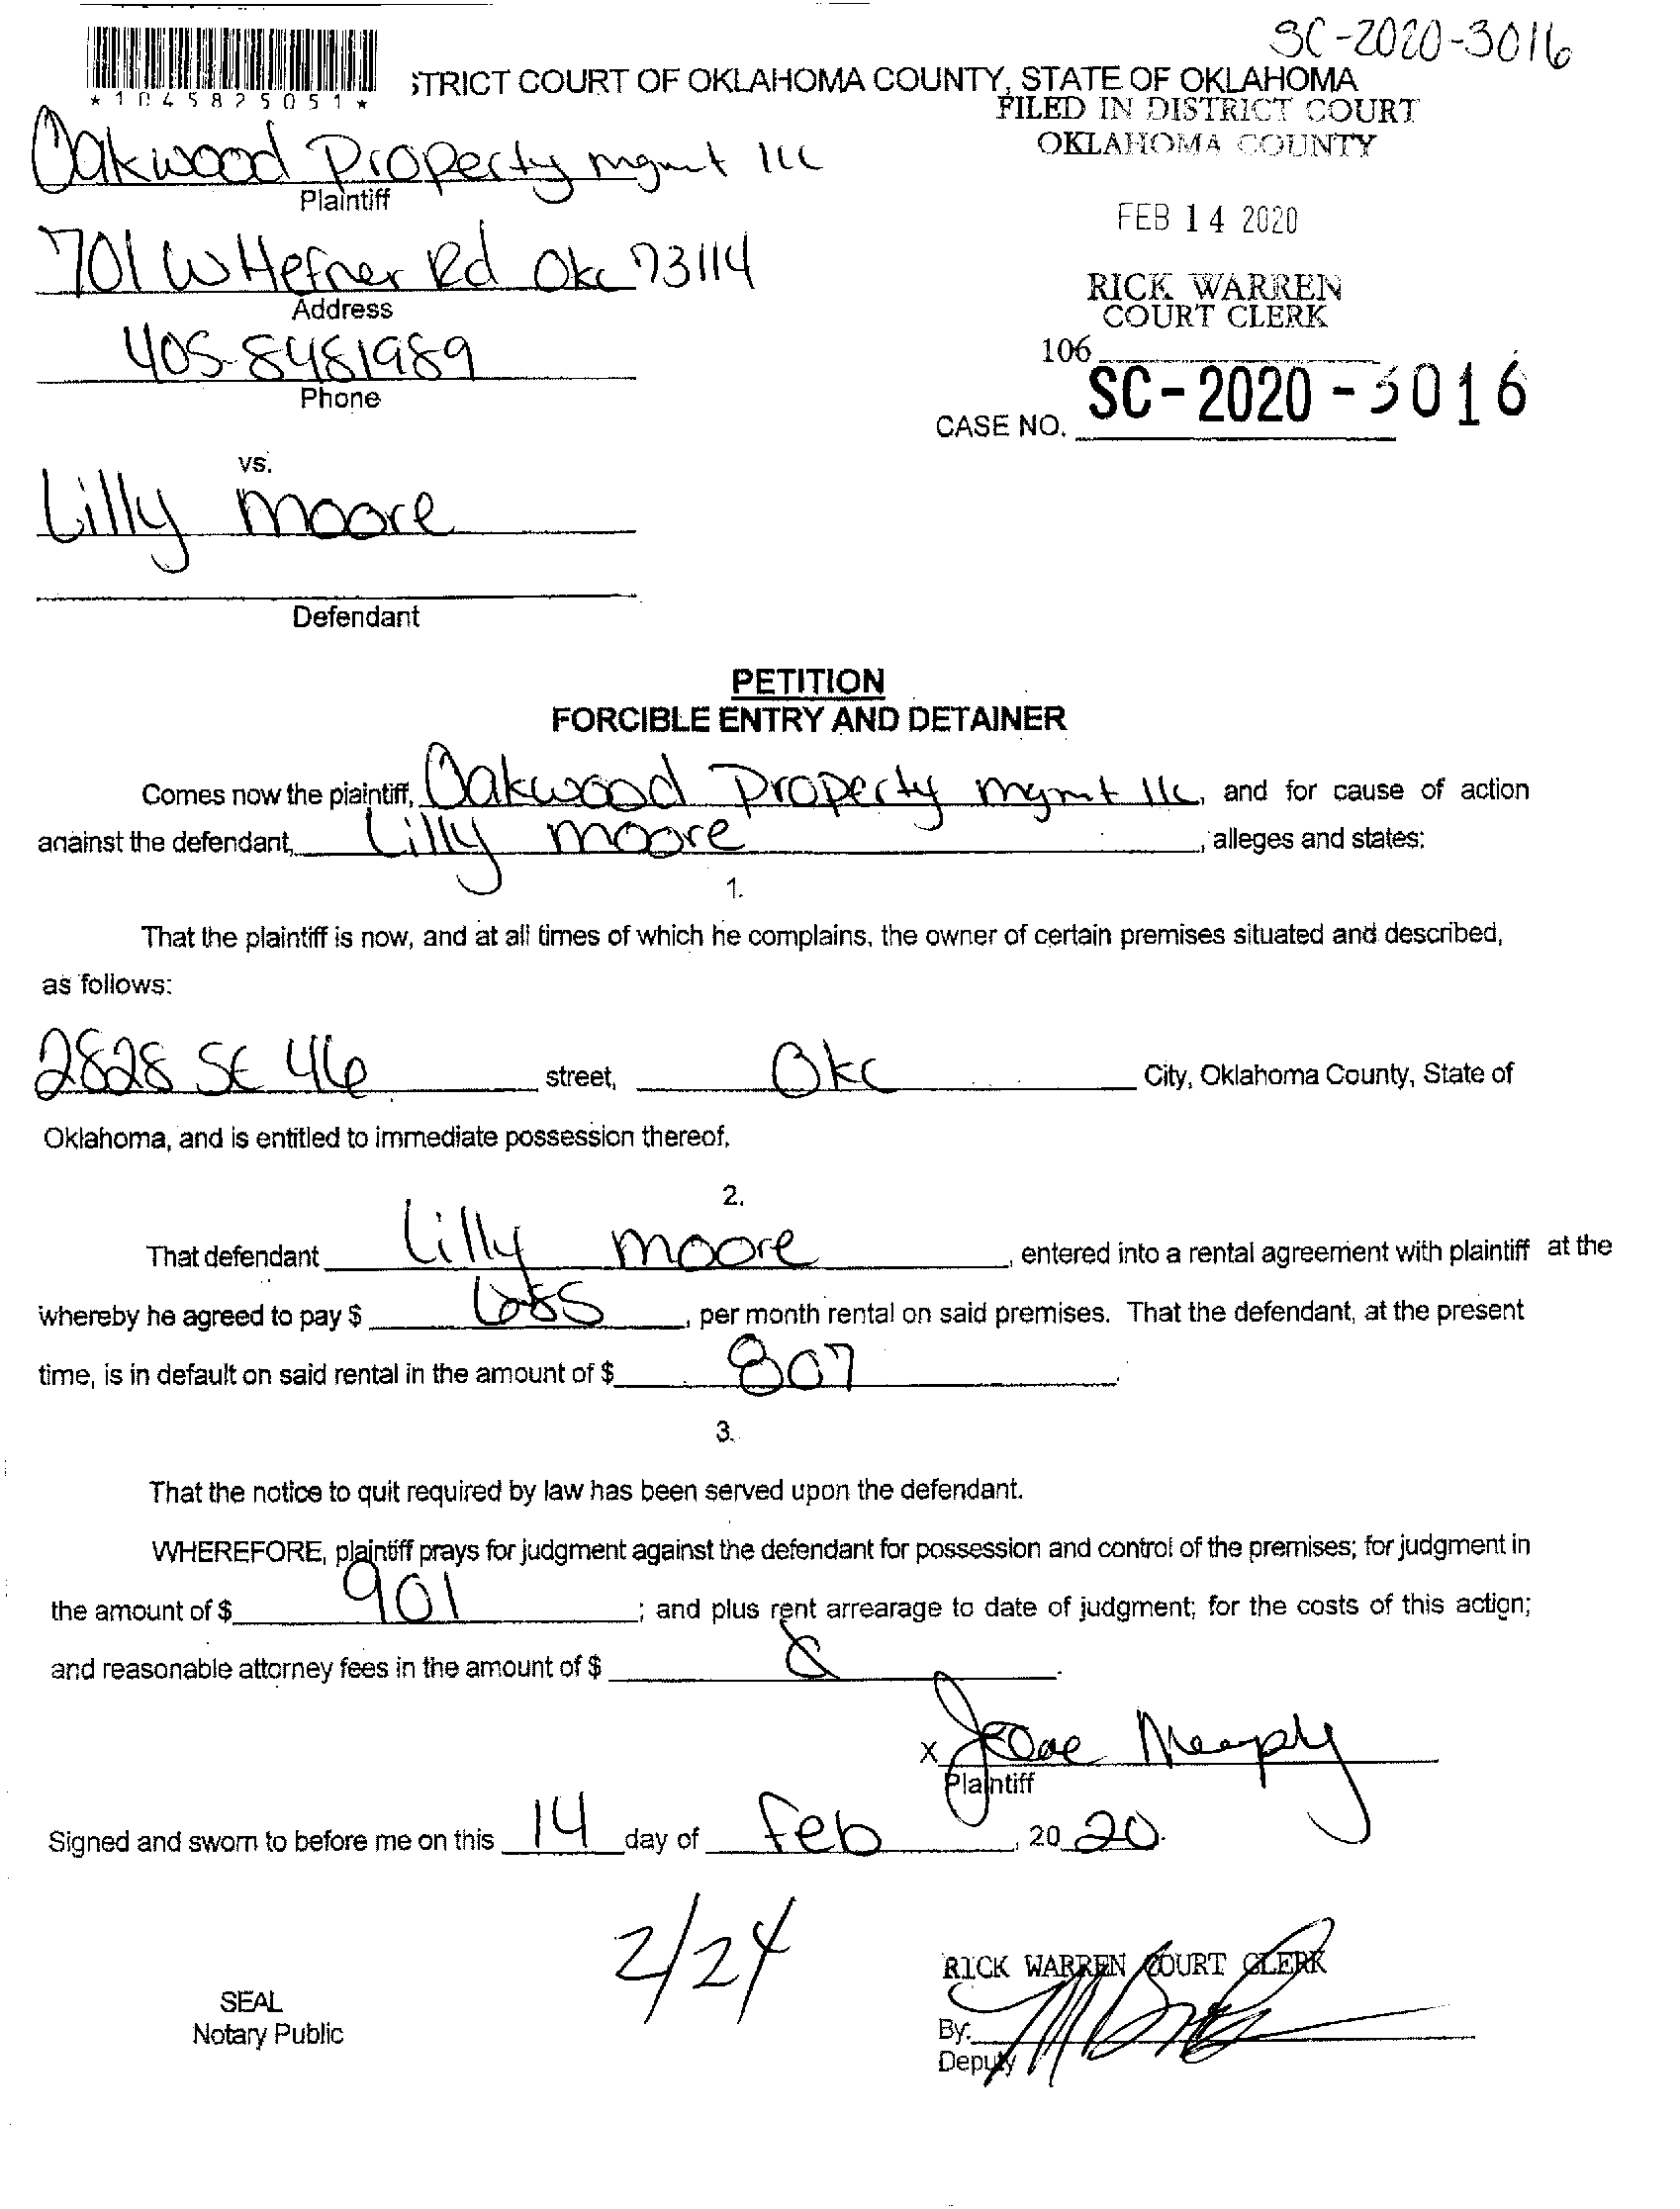 SC-2020-3016
*1045825051*
STRICT COURT OF OKLAHOMA COUNTY, STATE OF OKLAHOMA
FILED IN DISTRICT COURT
OKLAHOMA COUNTY
Oakwood Property mgmt llc
Plaintiff
FEB 14 2020
701 W Hefner Rd Okc 73114
Address
RICK WARREN
COURT CLERK
405-8481989
Phone
106
CASE NO. SC-2020-3016
vs.
Lilly moore
Defendant
PETITION
FORCIBLE ENTRY AND DETAINER
Comes now the plaintiff, Oakwood Property mgmt llc, and for cause of action
against the defendant, Lilly moore, alleges and states:
1.
That the plaintiff is now, and at all times of which he complains, the owner of certain premises situated and described,
as follows:
2828 SE 46 street, Okc City, Oklahoma County, State of
Oklahoma, and is entitled to immediate possession thereof.
2.
That defendant Lilly moore, entered into a rental agreement with plaintiff at the
whereby he agreed to pay $ , per month rental on said premises. That the defendant, at the present
time, is in default on said rental in the amount of $ 807.
3.
That the notice to quit required by law has been served upon the defendant.
WHEREFORE, plaintiff prays for judgment against the defendant for possession and control of the premises; for judgment in
the amount of $ 901; and plus rent arrearage to date of judgment; for the costs of this action;
and reasonable attorney fees in the amount of $ .
X
Plaintiff
Signed and sworn to before me on this 14 day of Feb, 2020.
2/24
RICK WARREN COURT CLERK
SEAL
Notary Public
By:
Deputy